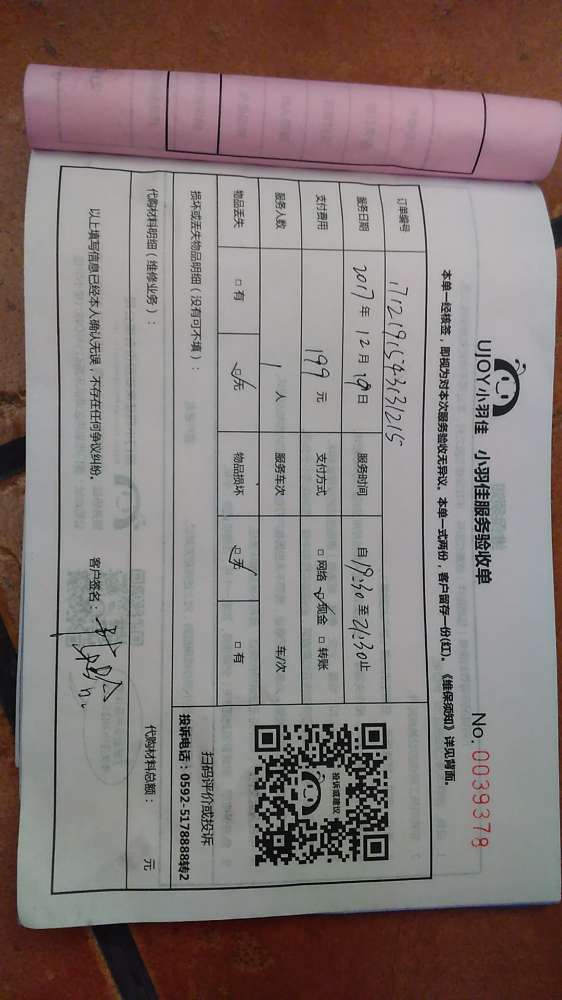 UJOY小羽佳 小羽佳服务验收单
No. 0039378
本单一经核签，即视为对本次服务验收无异议。本单一式两份，客户留存一份(红)。《维保须知》详见背面。
订单编号 1712191543131215
服务日期 2017年12月19日 服务时间 自19:30至21:30止
支付费用 199元 支付方式 □网络 ☑现金 □转账
服务人数 1人 服务车次 车/次
物品丢失 □有 ☑无 物品损坏 ☑无 □有
投诉或建议
扫码评价或投诉
投诉电话：0592-5178888转2
损坏或丢失物品明细（没有可不填）：
代购材料明细（维修业务）： 代购材料总额： 元
以上填写信息已经本人确认无误，不存在任何争议纠纷。 客户签名：